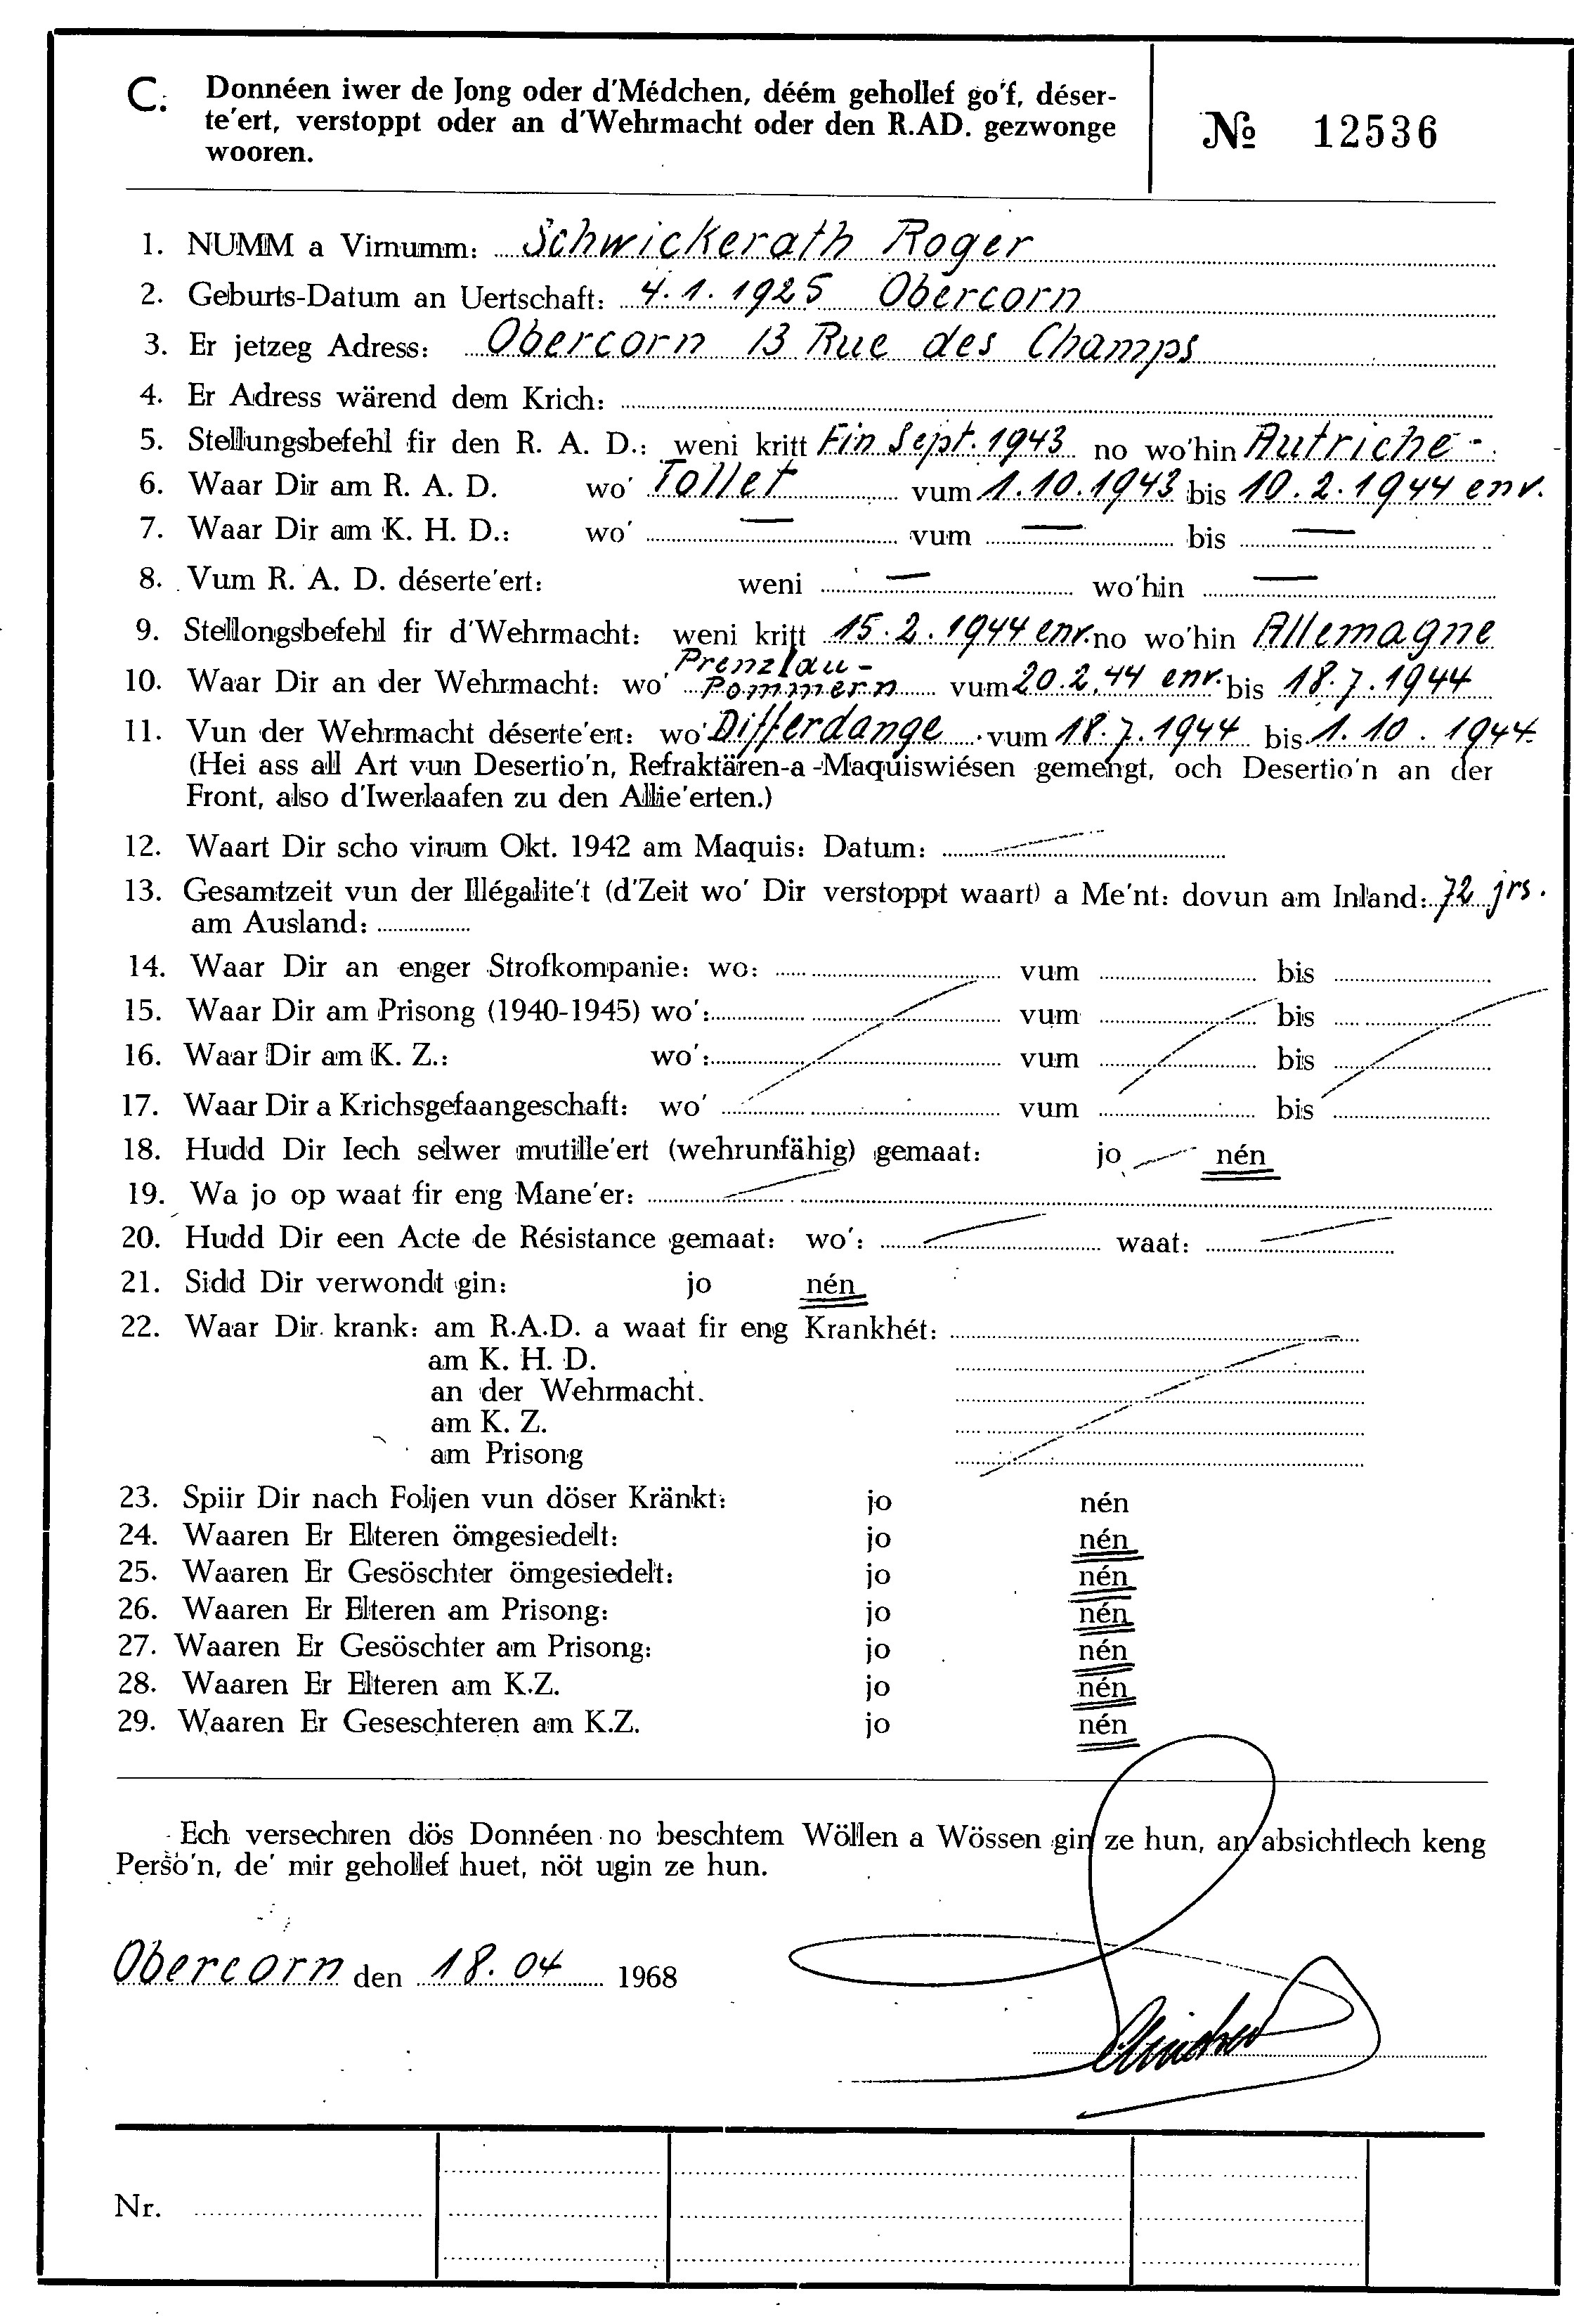 C. Donnéen iwer de Jong oder d'Médchen, déém gehollef go'f, déser-
te'ert, verstoppt oder an d'Wehrmacht oder den R.AD. gezwonge
wooren.
№ 12536
1. NUMM a Virnumm: Schwickerath Roger
2. Geburts-Datum an Uertschaft: 4.1.1925 Obercorn
3. Er jetzeg Adress: Obercorn 13 Rue des Champs
4. Er Adress wärend dem Krich:
5. Stellungsbefehl fir den R. A. D.: weni kritt Fin Sept. 1943 no wo'hin Autriche -
6. Waar Dir am R. A. D. wo' Tollet vum 1.10.1943 bis 10.2.1944 env.
7. Waar Dir am K. H. D.: wo' — vum — bis —
8. Vum R. A. D. déserte'ert: weni — wo'hin —
9. Stellongsbefehl fir d'Wehrmacht: weni kritt 15.2.1944 env. no wo'hin Allemagne
10. Waar Dir an der Wehrmacht: wo' Prenzlau - Pommern vum 20.2.44 env. bis 18.7.1944
11. Vun der Wehrmacht déserte'ert: wo' Differdange vum 18.7.1944 bis 1.10.1944
(Hei ass all Art vun Desertio'n, Refraktären-a -Maquiswiésen gemengt, och Desertio'n an der
Front, also d'Iwerlaafen zu den Allie'erten.)
12. Waart Dir scho virum Okt. 1942 am Maquis: Datum:
13. Gesamtzeit vun der Illégalite't (d'Zeit wo' Dir verstoppt waart) a Me'nt: dovun am Inland: 72 jrs.
am Ausland:
14. Waar Dir an enger Strofkompanie: wo: vum bis
15. Waar Dir am Prisong (1940-1945) wo': vum bis
16. Waar Dir am K. Z.: wo': vum bis
17. Waar Dir a Krichsgefaangeschaft: wo' vum bis
18. Hudd Dir Iech selwer mutille'ert (wehrunfähig) gemaat: jo nén
19. Wa jo op waat fir eng Mane'er:
20. Hudd Dir een Acte de Résistance gemaat: wo': waat:
21. Sidd Dir verwondt gin: jo nén
22. Waar Dir krank: am R.A.D. a waat fir eng Krankhét:
am K. H. D.
an der Wehrmacht.
am K. Z.
am Prisong
23. Spiir Dir nach Foljen vun döser Kränkt: jo nén
24. Waaren Er Elteren ömgesiedelt: jo nén
25. Waaren Er Gesöschter ömgesiedelt: jo nén
26. Waaren Er Elteren am Prisong: jo nén
27. Waaren Er Gesöschter am Prisong: jo nén
28. Waaren Er Elteren am K.Z. jo nén
29. Waaren Er Geseschteren am K.Z. jo nén
Ech versechren dös Donnéen no beschtem Wöllen a Wössen gin ze hun, an absichtlech keng
Perso'n, de' mir gehollef huet, nöt ugin ze hun.
Obercorn den 18.04 1968
Nr.